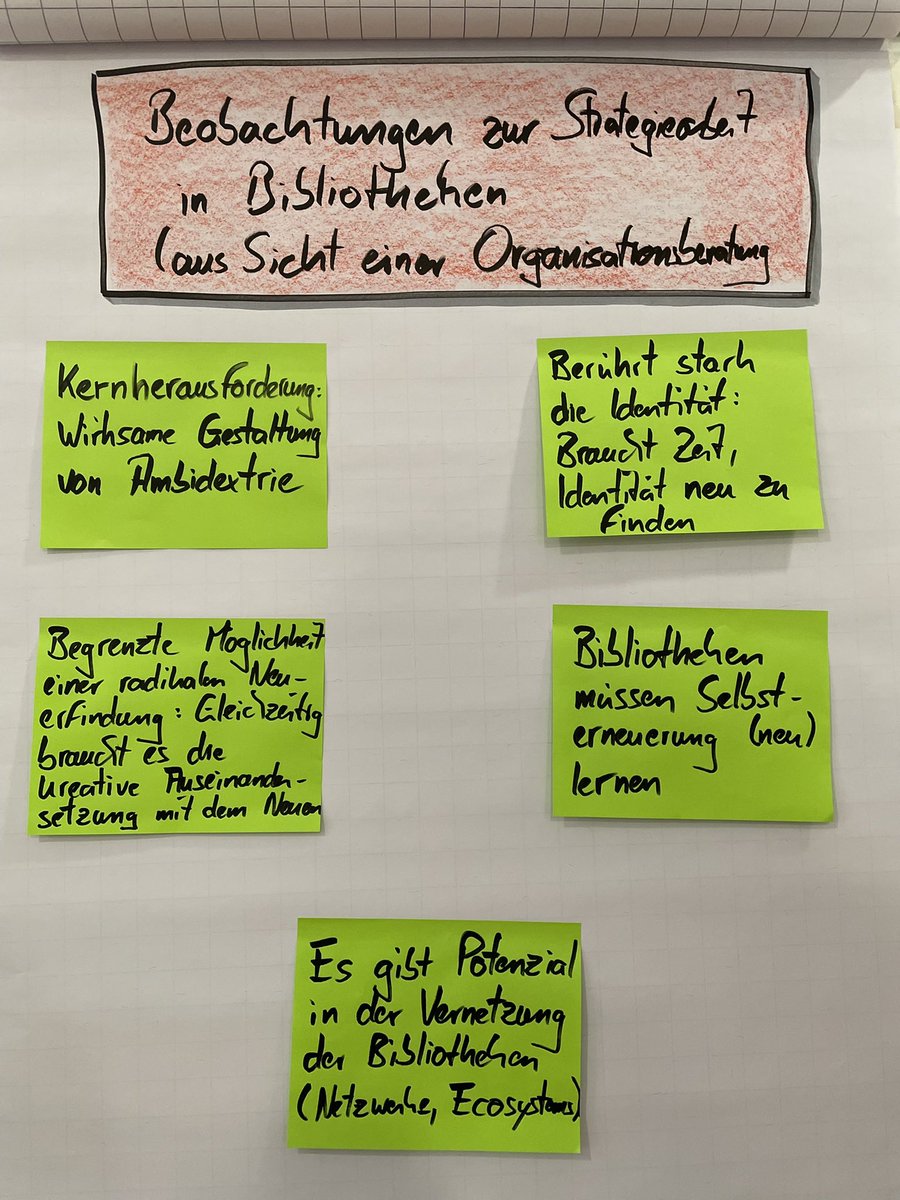 Beobachtungen zur Strategiearbeit
in Bibliotheken
(aus Sicht einer Organisationsberatung
Kernherausforderung:
Wirksame Gestaltung
von Ambidextrie
Berührt stark
die Identität:
Braucht Zeit,
Identität neu zu
finden
Begrenzte Möglichkeit
einer radikalen Neu-
erfindung: Gleichzeitig
braucht es die
kreative Auseinander-
setzung mit dem Neuen
Bibliotheken
müssen Selbst-
erneuerung (neu)
lernen
Es gibt Potenzial
in der Vernetzung
der Bibliotheken
(Netzwerke, Ecosystems)